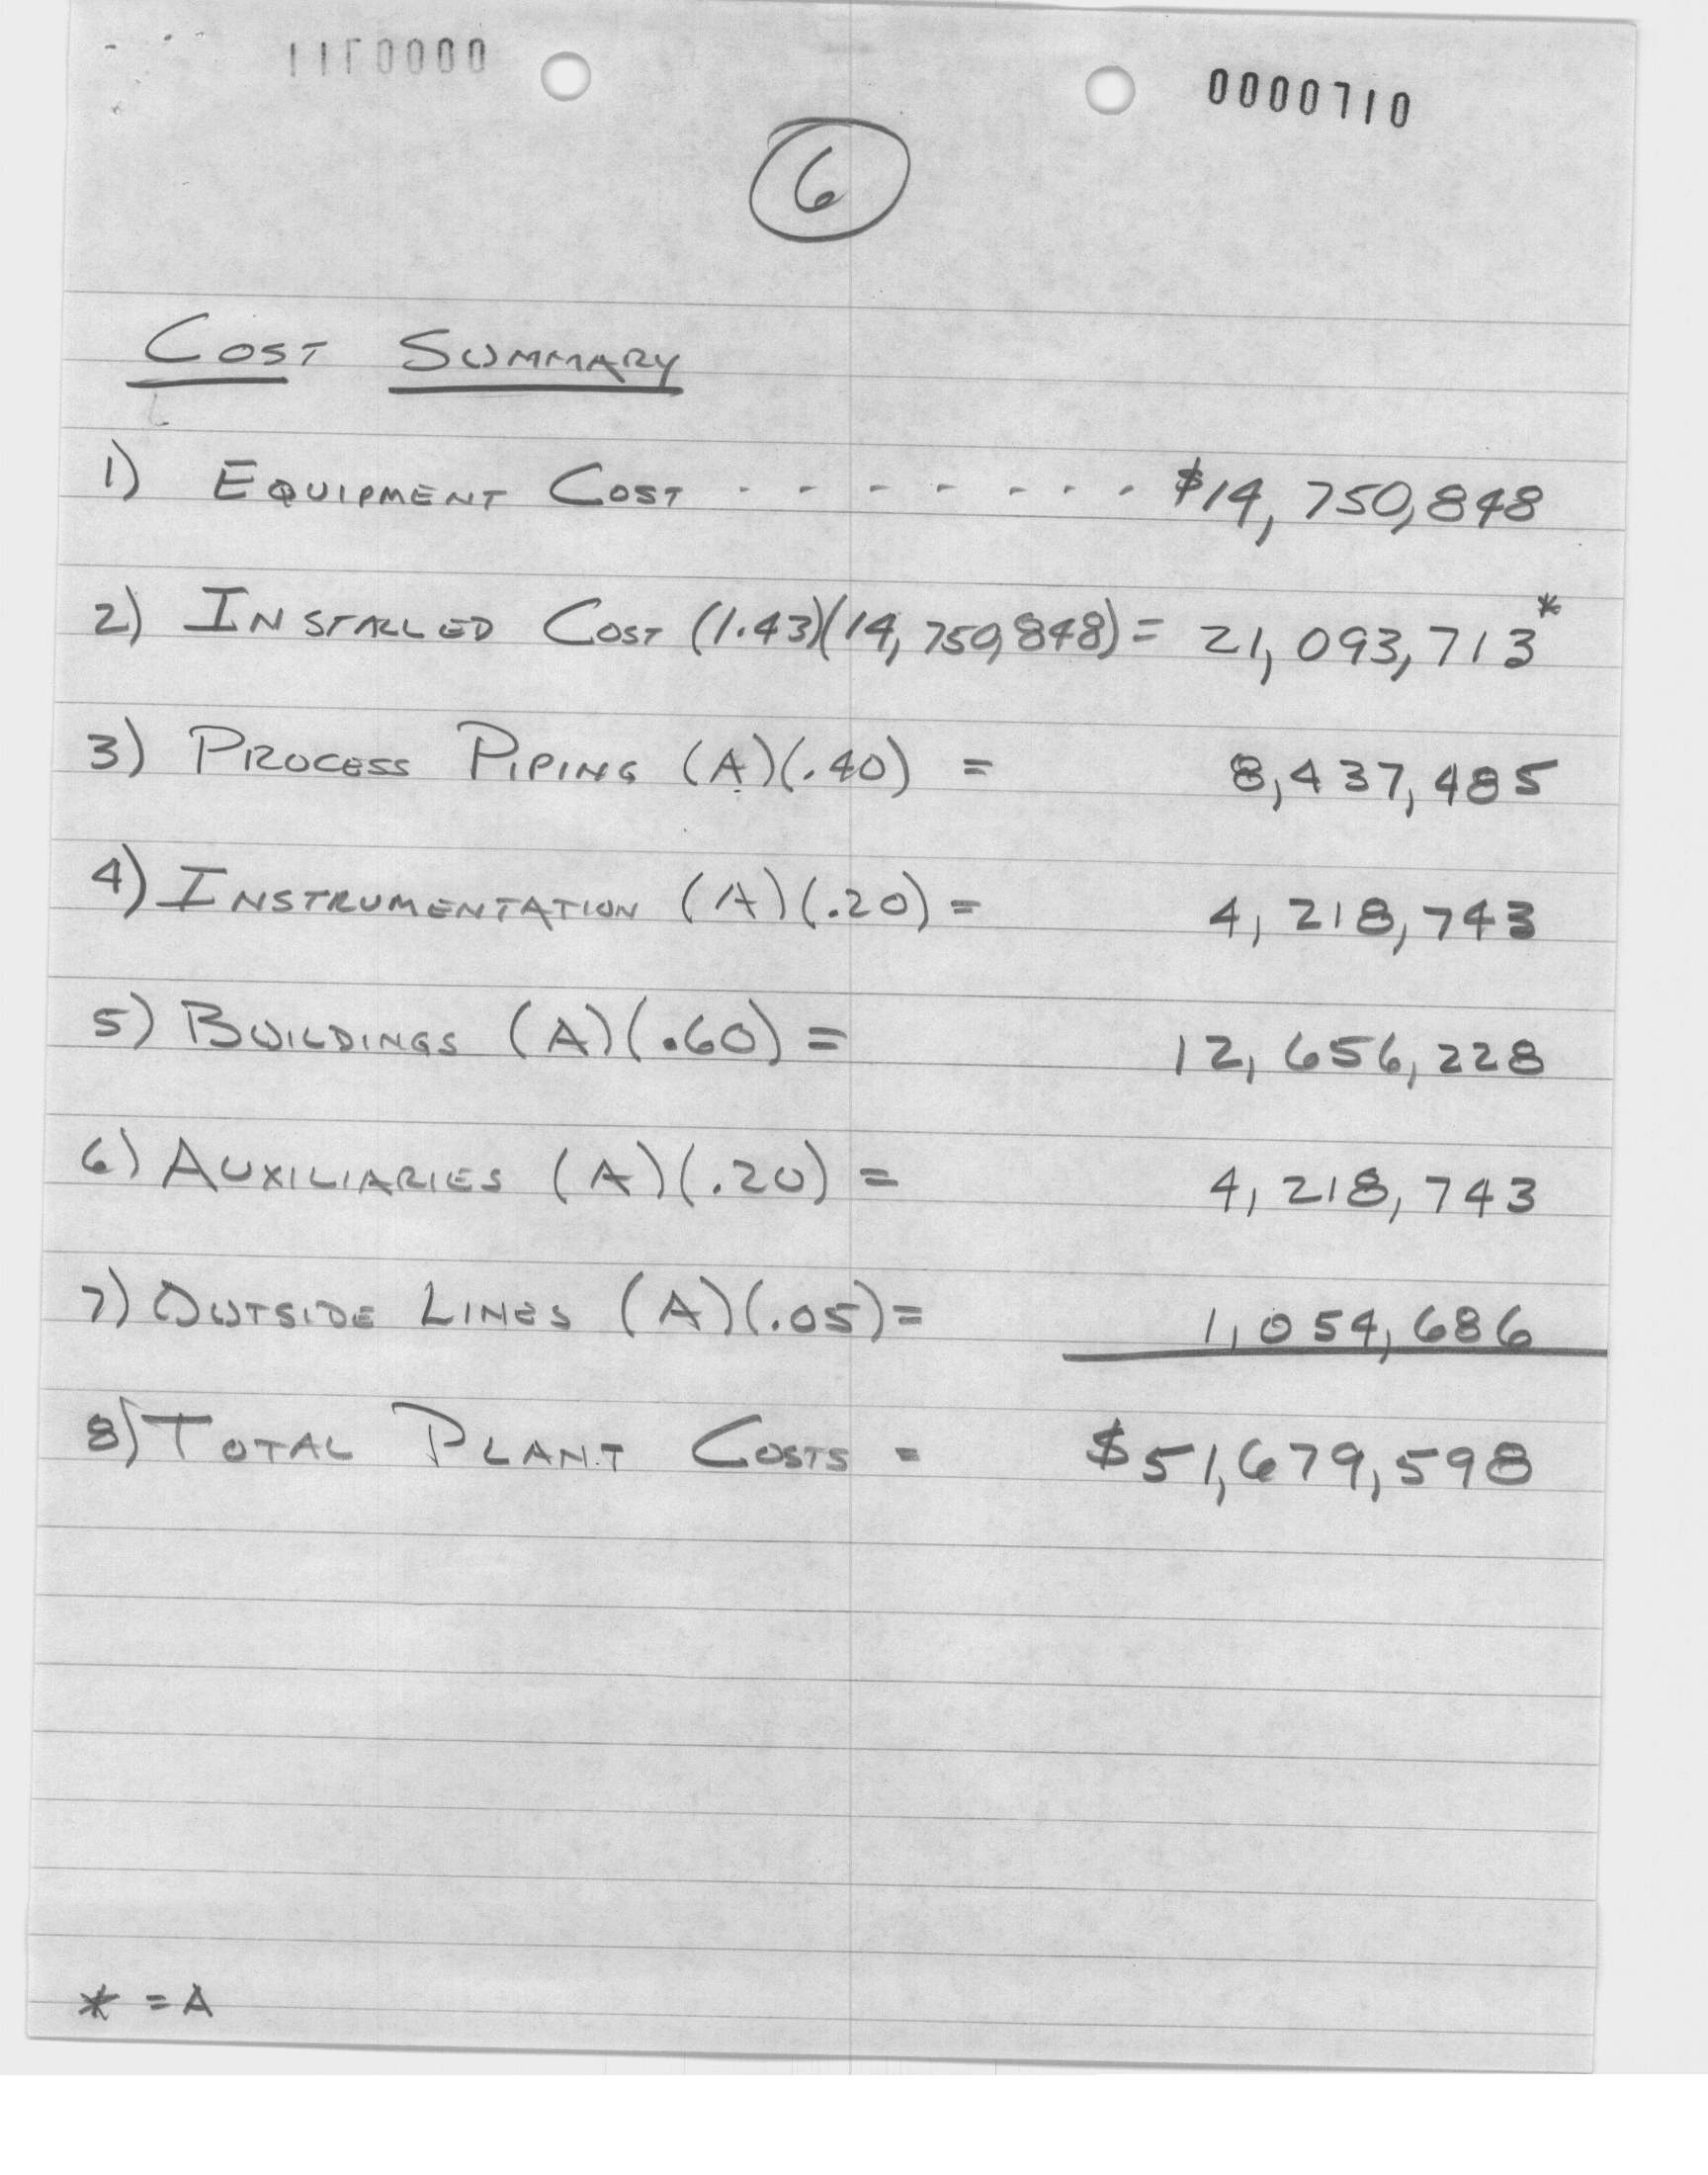 0000711
0000710
6
COST SUMMARY
1) EQUIPMENT COST - - - - - - - $14,750,848
2) INSTALLED COST (1.43)(14,750,848) = 21,093,713*
3) PROCESS PIPING (A)(.40) = 8,437,485
4) INSTRUMENTATION (A)(.20) = 4,218,743
5) BUILDINGS (A)(.60) = 12,656,228
6) AUXILIARIES (A)(.20) = 4,218,743
7) OUTSIDE LINES (A)(.05) = 1,054,686
8) TOTAL PLANT COSTS = $51,679,598
* = A